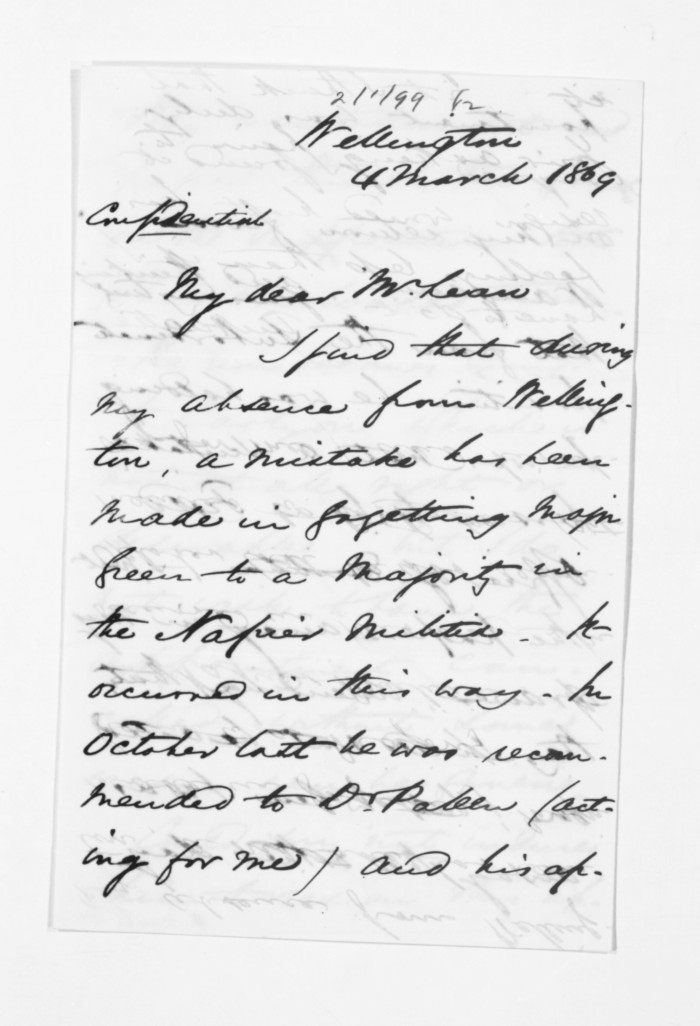 2/1/99
Wellington
4 March 1869
Confidential
My dear McLean
I find that during
my absence from Welling-
ton, a mistake has been
made in gazetting Major
Green to a Majority in
the Napier Militia - It
occurred in this way - In
October last he was recom-
mended to Dr. Pollen (act-
ing for me) and his ap-